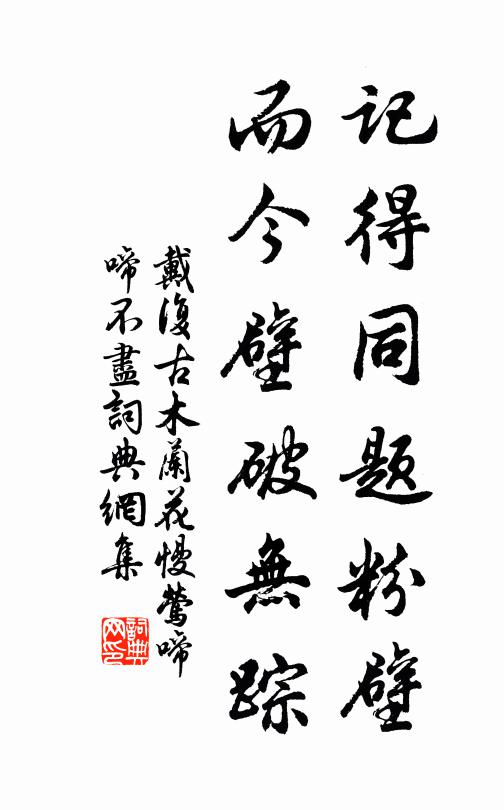 记得同题粉壁
而今壁破無踪
戴復古木蘭花慢鶯啼
啼不盡詞典網集
詞典网印